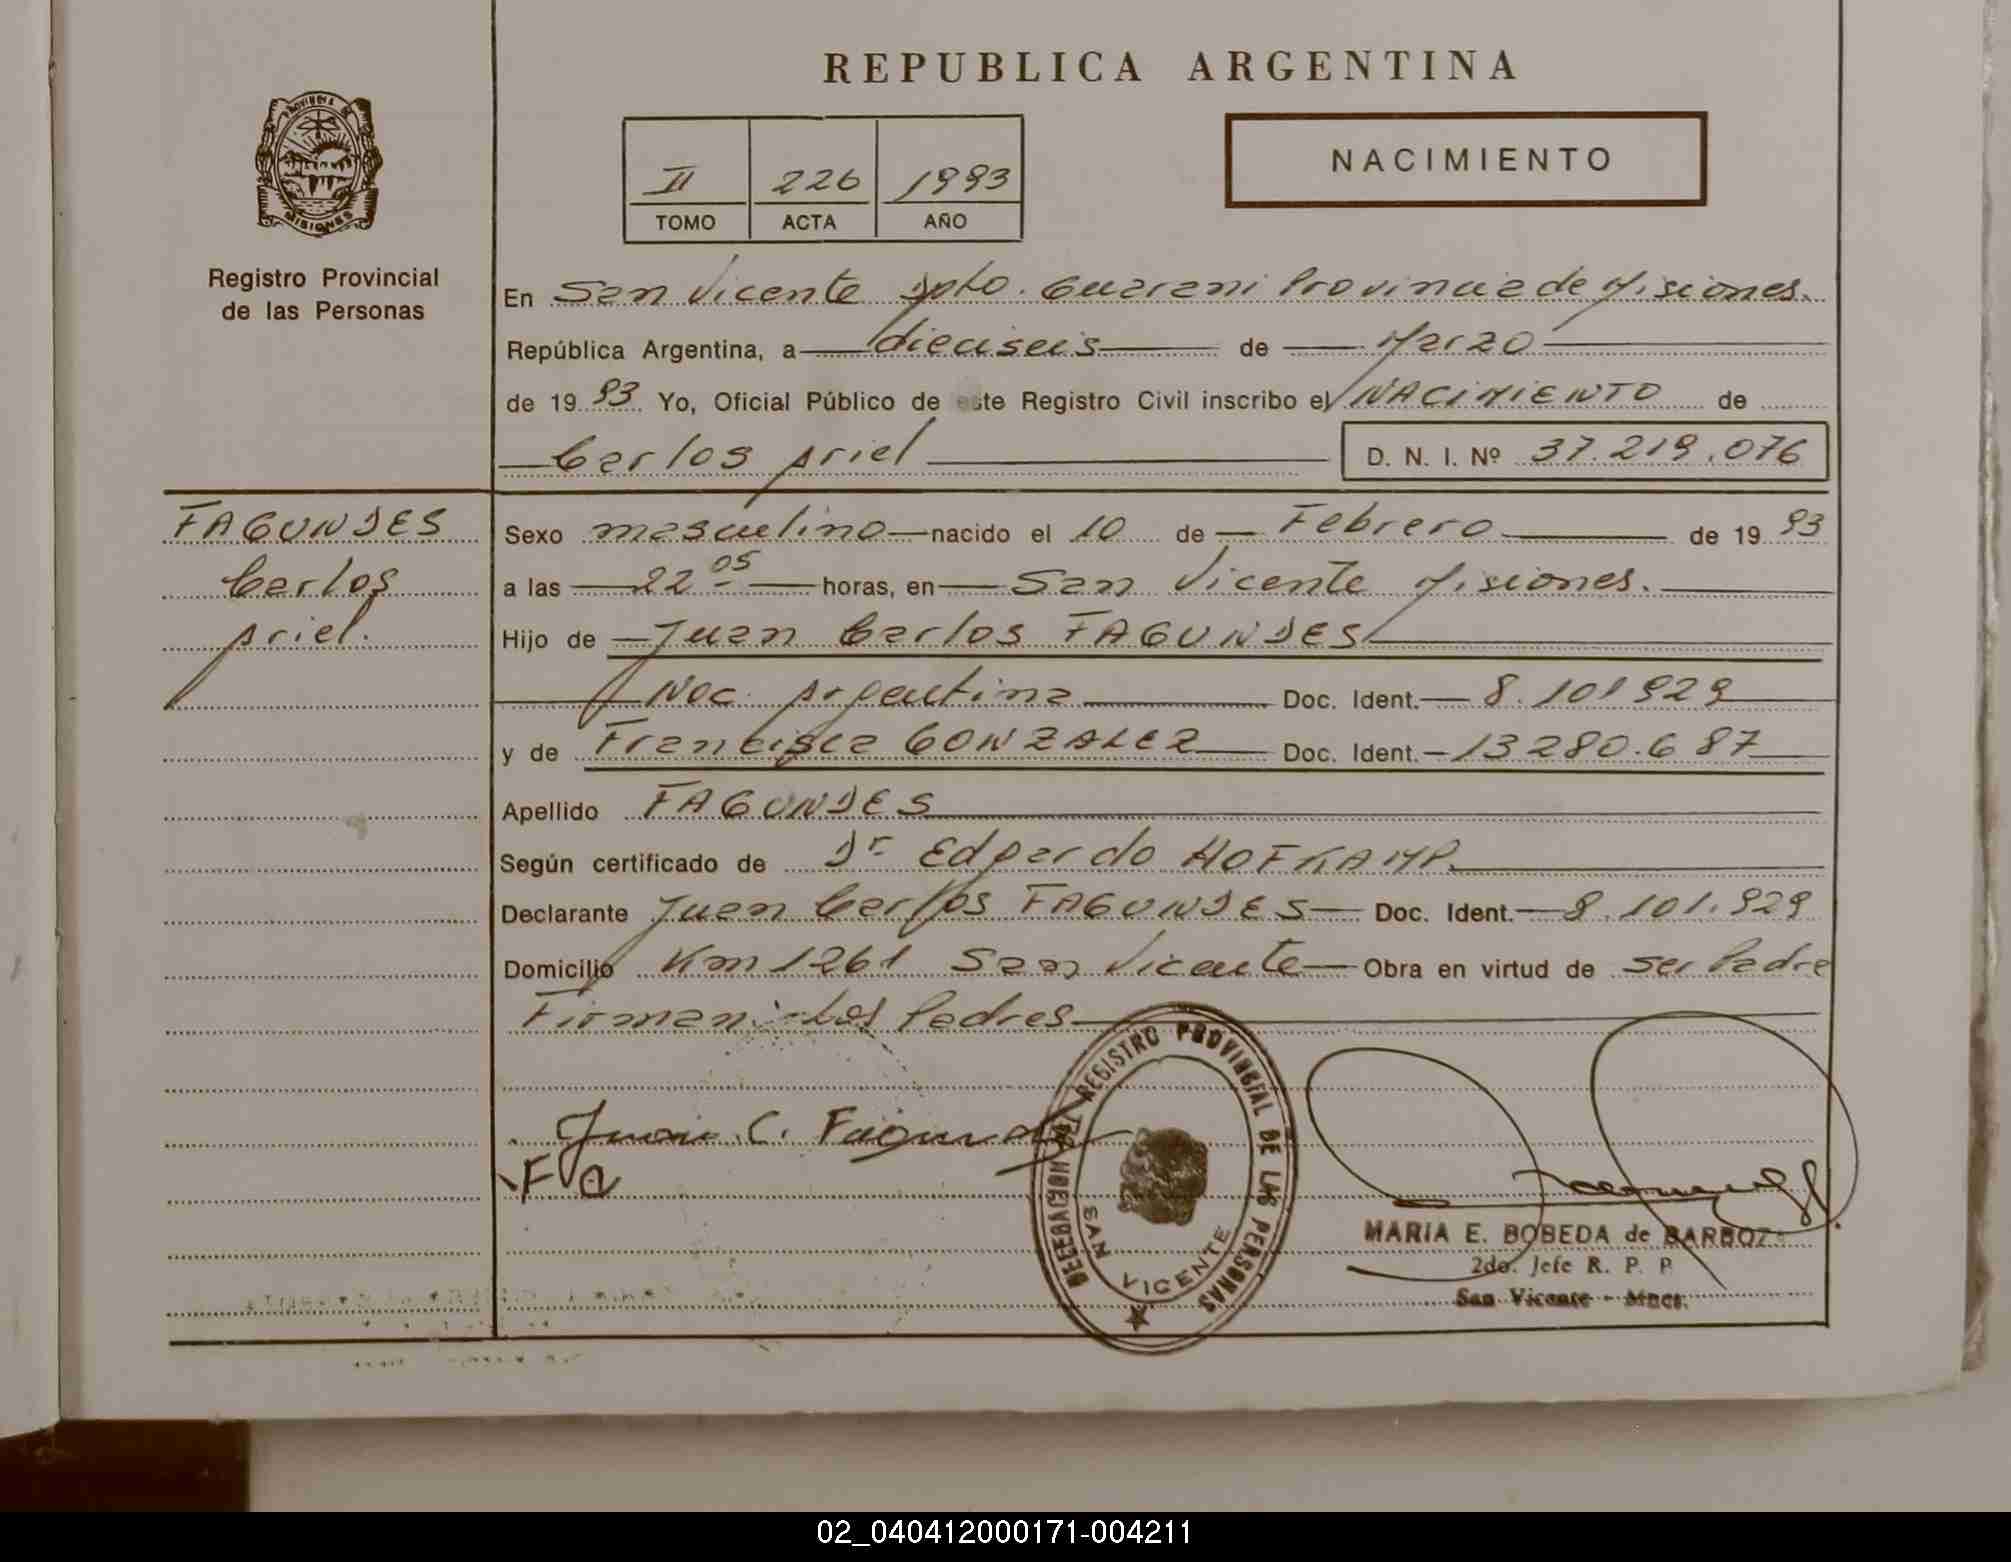 REPUBLICA ARGENTINA
PROVINCIA DE
MISIONES
Registro Provincial
de las Personas
II 226 1993
TOMO ACTA AÑO
NACIMIENTO
En San Vicente Dpto. Guarani Provincia de Misiones.
República Argentina, a dieciseis de Marzo
de 1993 Yo, Oficial Público de este Registro Civil inscribo el NACIMIENTO de
Carlos Ariel D. N. I. Nº 37.219.076
FAGUNDES
Carlos
Ariel.
Sexo masculino nacido el 10 de Febrero de 1993
a las 22 05 horas, en San Vicente Misiones.
Hijo de Juan Carlos FAGUNDES
Nac. Argentina Doc. Ident. 8.101929
y de Francisca GONZALEZ Doc. Ident. 13280.687
Apellido FAGUNDES
Según certificado de Dr Edgardo HOFKAMP.
Declarante Juan Carlos FAGUNDES Doc. Ident. 8.101.929
Domicilio Km 1261 San Vicente Obra en virtud de ser Padre
Firman Los Padres
Juan C. Fagundes
F G
DELEGACION DEL REGISTRO PROVINCIAL DE LAS PERSONAS
SAN VICENTE
MARIA E. BOBEDA de BARBOZA
2do. Jefe R. P. P.
San Vicente - Mnes.
02_040412000171-004211